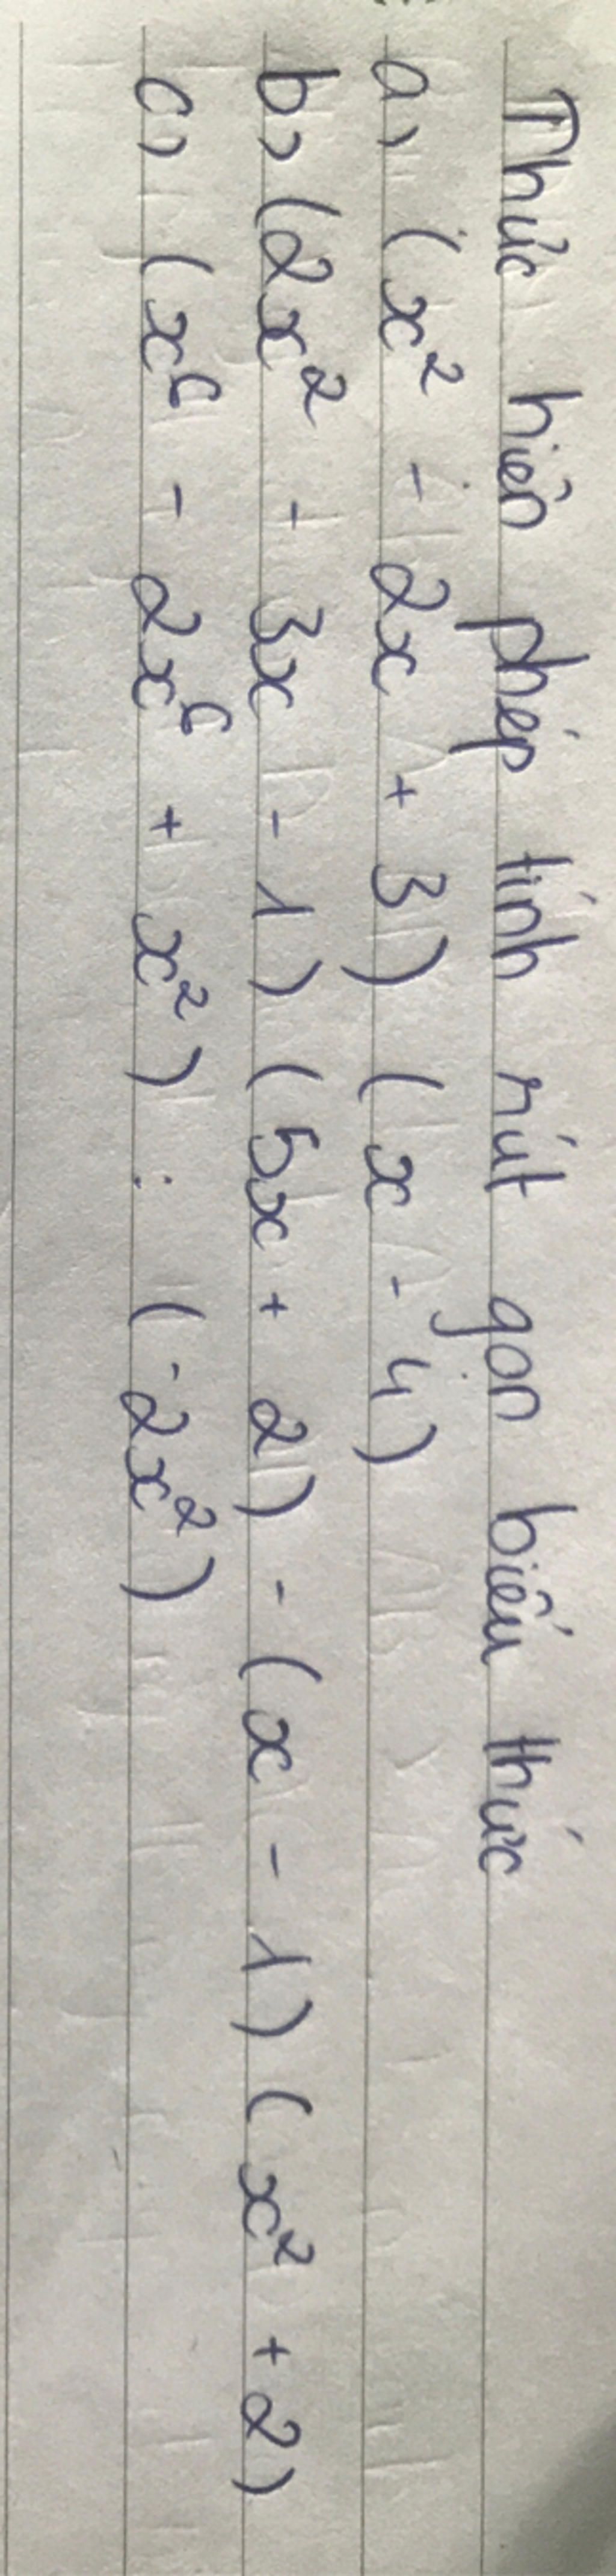 Thức hiện phép tính rút gọn biểu thức
a, (x² - 2x + 3) (x - 4)
b, (2x² - 3x - 1) (5x + 2) - (x - 1) (x² + 2)
c, (x⁶ - 2x⁶ + x²) : (-2x²)